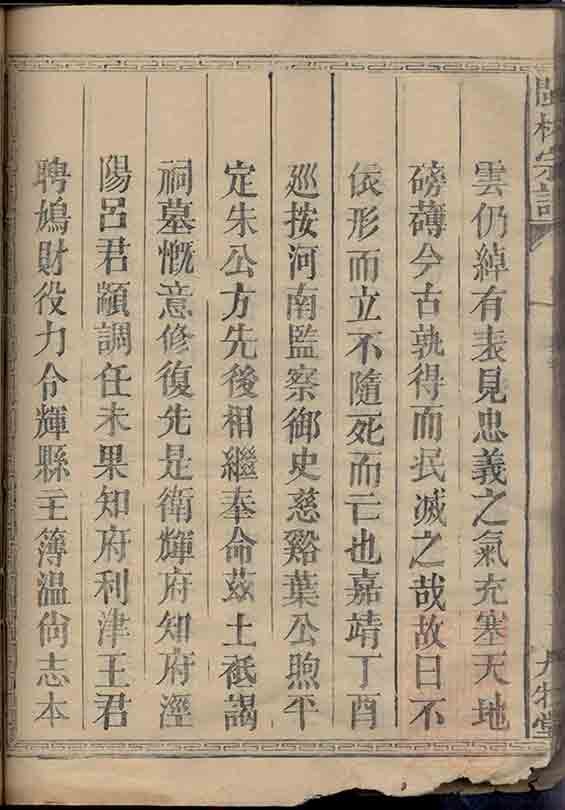 林宗譜
雲仍綽有表見忠義之氣充塞天地
磅礡今古孰得而民滅之哉故曰不
依形而立不隨死而亡也嘉靖丁酉
廵按河南監察御史慈谿葉公照平
定朱公方先後相繼奉命茲土祗謁
祠墓慨意修復先是衛輝府知府涇
陽呂君顒調任未果知府利津王君
聘鳩財役力令輝縣主簿温尙志本
牧堂